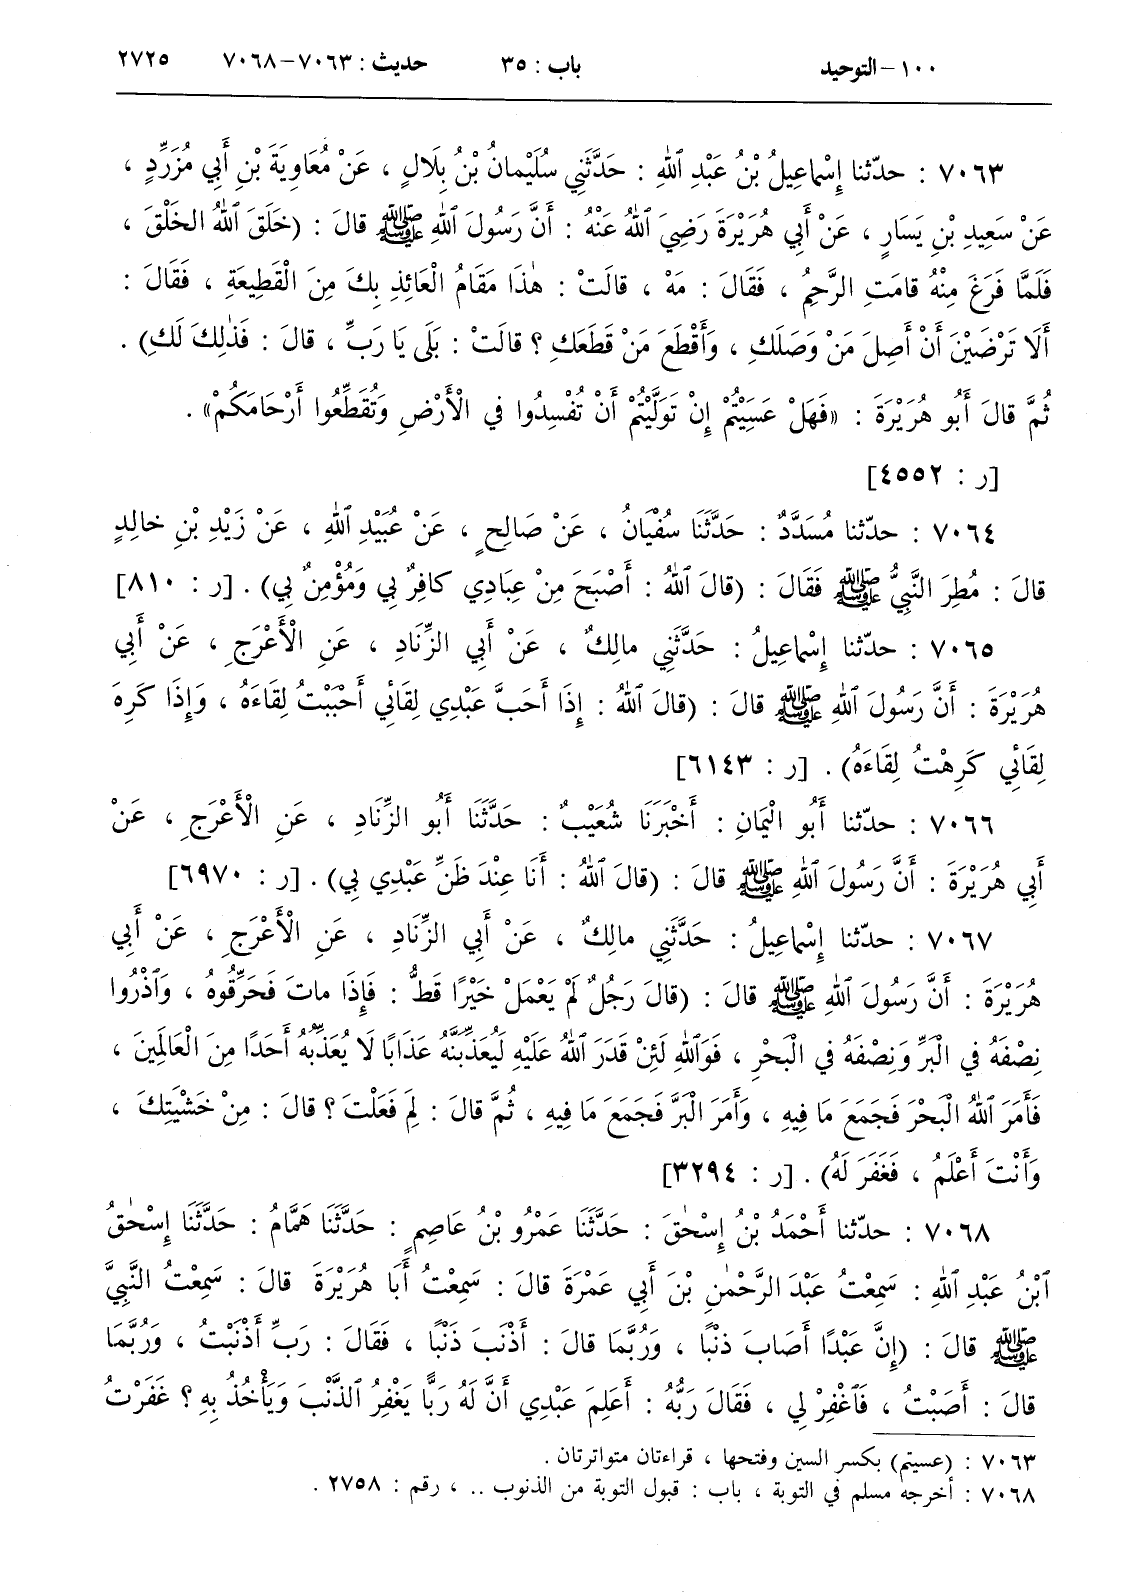 ١٠٠ – التوحيد باب : ٣٥ حديث : ٧٠٦٣ – ٧٠٦٨ ٢٧٢٥
٧٠٦٣ : حدّثنا إِسْماعِيلُ بْنُ عَبْدِ ٱللهِ : حَدَّثَنِي سُلَيْمانُ بْنُ بِلَالٍ ، عَنْ مُعَاوِيَةَ بْنِ أَبِي مُزَرِّدٍ ،
عَنْ سَعِيدِ بْنِ يَسَارٍ ، عَنْ أَبِي هُرَيْرَةَ رَضِيَ ٱللهُ عَنْهُ : أَنَّ رَسُولَ ٱللهِ ﷺ قالَ : (خَلَقَ ٱللهُ الخَلْقَ ،
فَلَمَّا فَرَغَ مِنْهُ قامَتِ الرَّحِمُ ، فَقَالَ : مَهْ ، قالَتْ : هٰذَا مَقَامُ الْعَائِذِ بِكَ مِنَ الْقَطِيعَةِ ، فَقَالَ :
أَلَا تَرْضَيْنَ أَنْ أَصِلَ مَنْ وَصَلَكِ ، وَأَقْطَعَ مَنْ قَطَعَكِ ؟ قالَتْ : بَلَى يَا رَبِّ ، قالَ : فَذٰلِكَ لَكِ) .
ثُمَّ قالَ أَبُو هُرَيْرَةَ : «فَهَلْ عَسَيْتُمْ إِنْ تَوَلَّيْتُمْ أَنْ تُفْسِدُوا فِي الْأَرْضِ وَتُقَطِّعُوا أَرْحَامَكُمْ» .
[ر : ٤٥٥٢]
٧٠٦٤ : حدّثنا مُسَدَّدٌ : حَدَّثَنَا سُفْيَانُ ، عَنْ صَالِحٍ ، عَنْ عُبَيْدِ ٱللهِ ، عَنْ زَيْدِ بْنِ خالِدٍ
قالَ : مُطِرَ النَّبِيُّ ﷺ فَقَالَ : (قالَ ٱللهُ : أَصْبَحَ مِنْ عِبَادِي كافِرٌ بِي وَمُؤْمِنٌ بِي) . [ر : ٨١٠]
٧٠٦٥ : حدّثنا إِسْماعِيلُ : حَدَّثَنِي مالِكٌ ، عَنْ أَبِي الزِّنَادِ ، عَنِ الْأَعْرَجِ ، عَنْ أَبِي
هُرَيْرَةَ : أَنَّ رَسُولَ ٱللهِ ﷺ قالَ : (قالَ ٱللهُ : إِذَا أَحَبَّ عَبْدِي لِقَائِي أَحْبَبْتُ لِقَاءَهُ ، وَإِذَا كَرِهَ
لِقَائِي كَرِهْتُ لِقَاءَهُ) . [ر : ٦١٤٣]
٧٠٦٦ : حدّثنا أَبُو الْيَمانِ : أَخْبَرَنَا شُعَيْبٌ : حَدَّثَنَا أَبُو الزِّنَادِ ، عَنِ الْأَعْرَجِ ، عَنْ
أَبِي هُرَيْرَةَ : أَنَّ رَسُولَ ٱللهِ ﷺ قالَ : (قالَ ٱللهُ : أَنَا عِنْدَ ظَنِّ عَبْدِي بِي) . [ر : ٦٩٧٠]
٧٠٦٧ : حدّثنا إِسْماعِيلُ : حَدَّثَنِي مالِكٌ ، عَنْ أَبِي الزِّنَادِ ، عَنِ الْأَعْرَجِ ، عَنْ أَبِي
هُرَيْرَةَ : أَنَّ رَسُولَ ٱللهِ ﷺ قالَ : (قالَ رَجُلٌ لَمْ يَعْمَلْ خَيْرًا قَطُّ : فَإِذَا ماتَ فَحَرِّقُوهُ ، وَٱذْرُوا
نِصْفَهُ فِي الْبَرِّ وَنِصْفَهُ فِي الْبَحْرِ ، فَوَٱللهِ لَئِنْ قَدَرَ ٱللهُ عَلَيْهِ لَيُعَذِّبَنَّهُ عَذَابًا لَا يُعَذِّبُهُ أَحَدًا مِنَ الْعَالَمِينَ ،
فَأَمَرَ ٱللهُ الْبَحْرَ فَجَمَعَ مَا فِيهِ ، وَأَمَرَ الْبَرَّ فَجَمَعَ مَا فِيهِ ، ثُمَّ قالَ : لِمَ فَعَلْتَ ؟ قالَ : مِنْ خَشْيَتِكَ ،
وَأَنْتَ أَعْلَمُ ، فَغَفَرَ لَهُ) . [ر : ٣٢٩٤]
٧٠٦٨ : حدّثنا أَحْمَدُ بْنُ إِسْحٰقَ : حَدَّثَنَا عَمْرُو بْنُ عَاصِمٍ : حَدَّثَنَا هَمَّامٌ : حَدَّثَنَا إِسْحٰقُ
ٱبْنُ عَبْدِ ٱللهِ : سَمِعْتُ عَبْدَ الرَّحْمٰنِ بْنَ أَبِي عَمْرَةَ قالَ : سَمِعْتُ أَبَا هُرَيْرَةَ قالَ : سَمِعْتُ النَّبِيَّ
ﷺ قالَ : (إِنَّ عَبْدًا أَصَابَ ذَنْبًا ، وَرُبَّمَا قالَ : أَذْنَبَ ذَنْبًا ، فَقَالَ : رَبِّ أَذْنَبْتُ ، وَرُبَّمَا
قالَ : أَصَبْتُ ، فَٱغْفِرْ لِي ، فَقَالَ رَبُّهُ : أَعَلِمَ عَبْدِي أَنَّ لَهُ رَبًّا يَغْفِرُ ٱلذَّنْبَ وَيَأْخُذُ بِهِ ؟ غَفَرْتُ
٧٠٦٣ : (عسيتم) بكسر السين وفتحها ، قراءتان متواترتان .
٧٠٦٨ : أخرجه مسلم في التوبة ، باب : قبول التوبة من الذنوب .. ، رقم : ٢٧٥٨ .